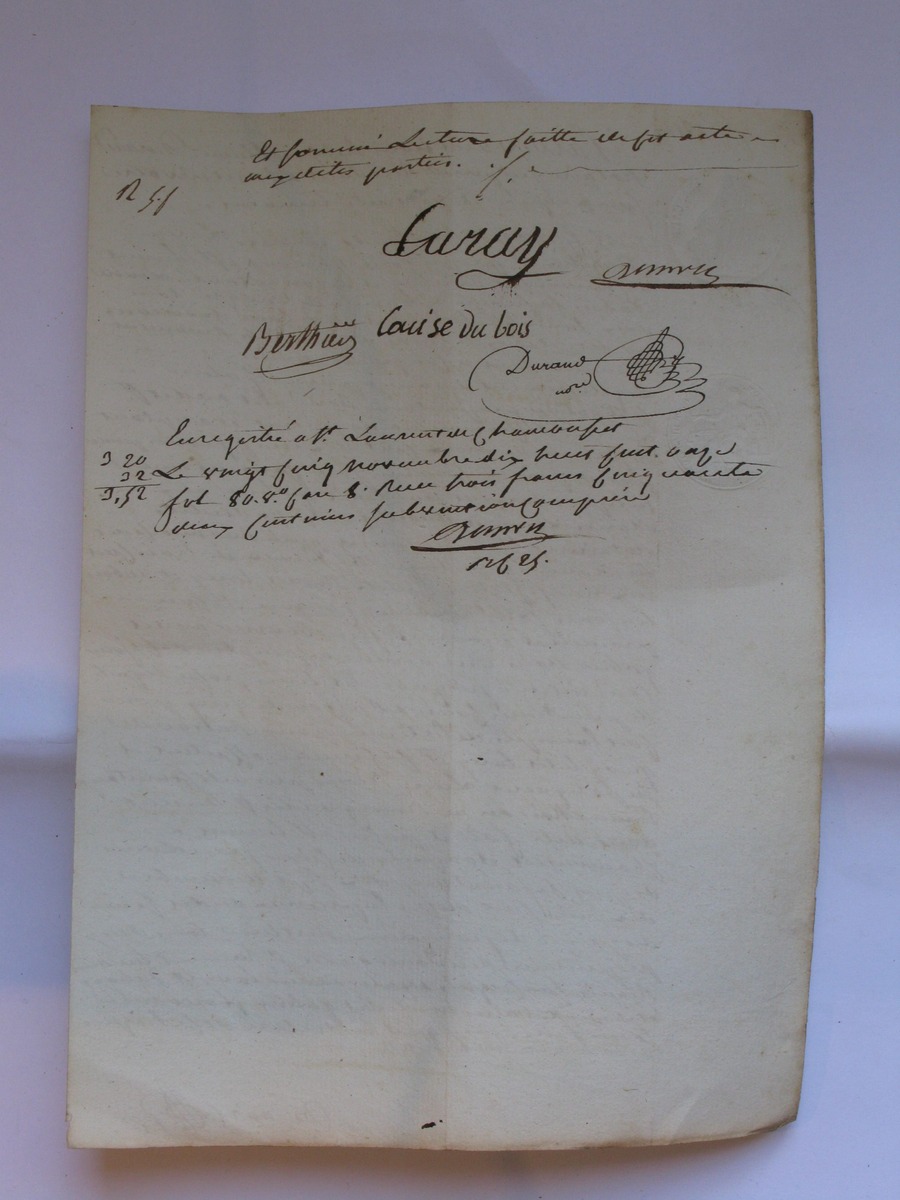 Et sommé Lecture faitte de fet acte
auxdites parties.
R 5f
Caray
Berthier Louise du bois
Durand
nore
Enregistré a St. Laurent de Chamousset
3 20
32
3,52
Le vingt cinq novembre dix huit cent onze
fol 80. vo Case 8. Reçu trois francs cinquante
deux centimes subvention comprise